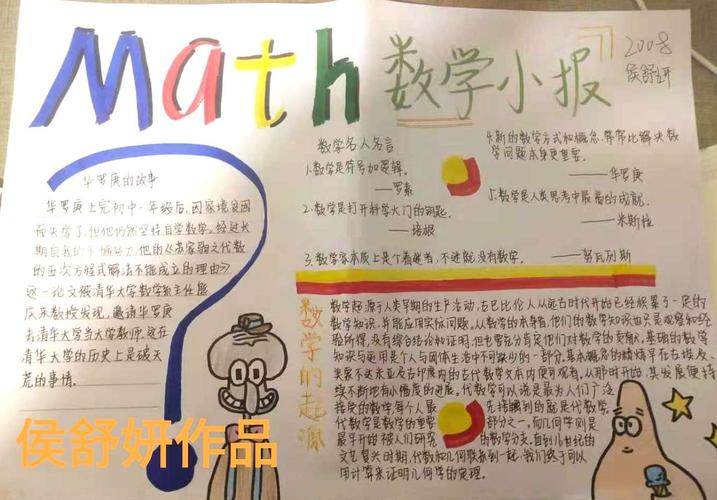 Math 数学小报
2008
侯舒妍
华罗庚的故事
华罗庚上完初中一年级后,因家境贫困
而失学了,但他仍然坚持自学数学。经过长
期自我的不懈努力,他的《苏家驹之代数
的五次方程式解法不能成立的理由》
这一论文被清华大学数学系主任熊
庆来教授发现,邀请华罗庚
去清华大学当大学教师,这在
清华大学的历史上是破天
荒的事情。
数学名人名言
1.数学是符号加逻辑。
——罗素
2.数学是打开科学大门的钥匙。
——培根
3.数学家本质上是个着迷者,不迷就没有数学。
——努瓦列斯
4.新的数学方式和概念,常常比解决数
学问题本身更重要。
——华罗庚
5.数学是人类思考中最高的成就。
——米斯拉
数学的起源
数学起源于人类早期的生产活动,古巴比伦人从远古时代开始已经积累了一定的
数学知识,并能应用实际问题。从数学的本身看,他们的数学知识也只是观察和经
验所得,没有综合结论和证明,但也要充分肯定他们对数学的贡献。基础的数学
知识与运用是个人与团体生活中不可缺少的一部分。基本概念的精炼早在古埃及、
美索不达米亚及古印度内的古代数学文本内便可观见,从那时开始,其发展便持
续不断地有小幅度的进展。代数学可以说是最为人们广泛
接受的数学,每个人最先接触到的就是代数学。
代数学是数学的重要部分之一,而几何学则是
最早开始被人们研究的数学分支,直到16世纪的
文艺复兴时期,代数和几何联系到一起,我们终于可以
用计算来证明几何学的定理。
侯舒妍作品